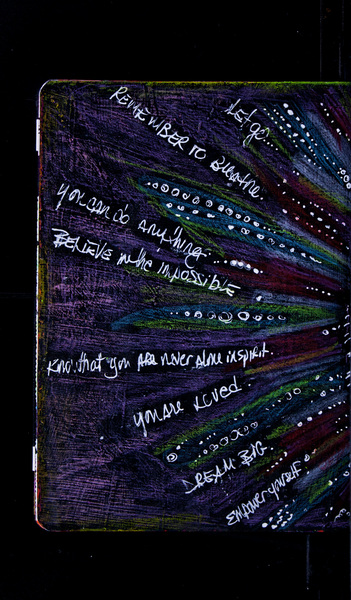 let go
REMEMBER TO Breathe.
you can do anything
BELIEVE in the impossible
know that you ARE never alone in spirit.
you are loved.
DREAM BIG.
EMPOWER yourself.